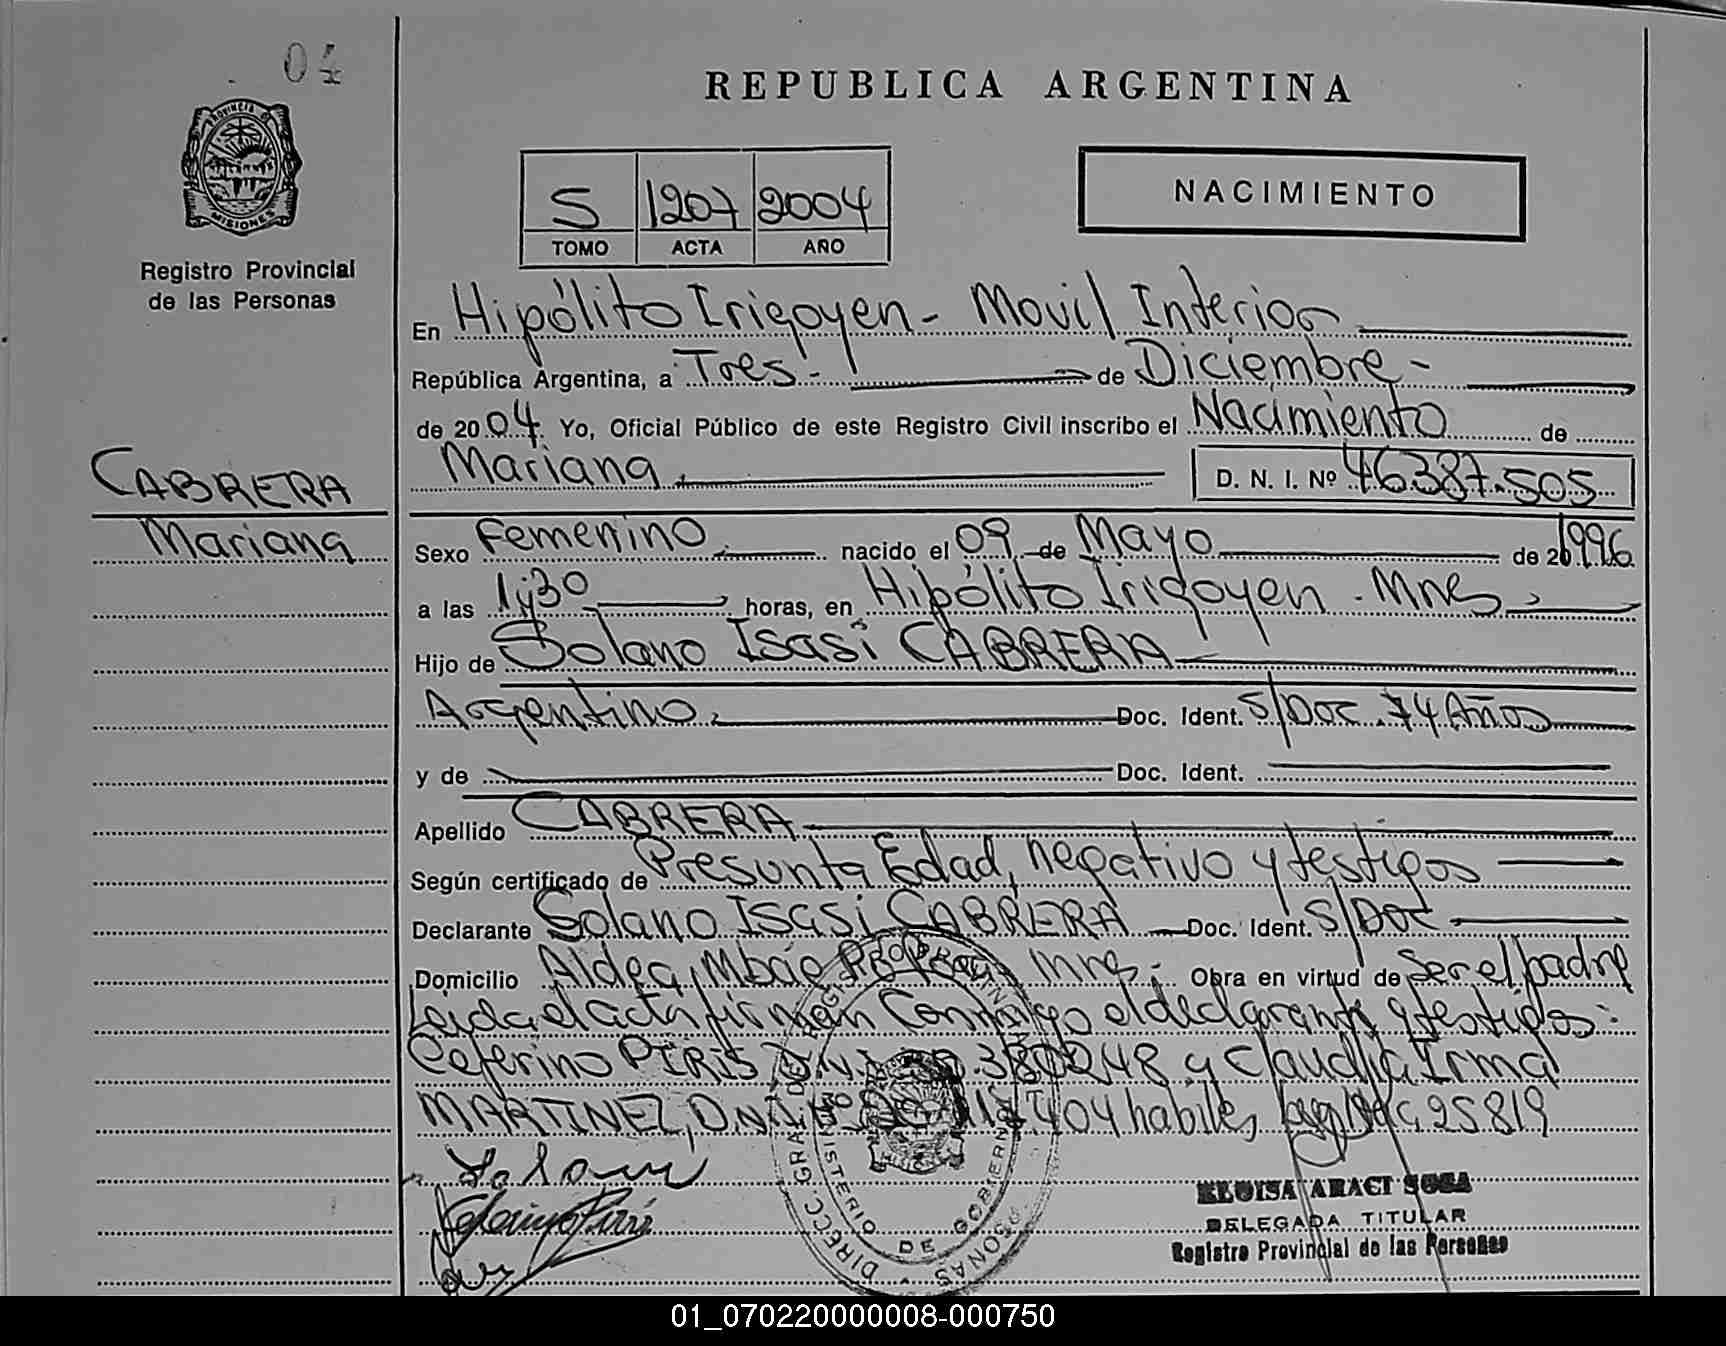 04
PROVINCIA DE
MISIONES
Registro Provincial
de las Personas
CABRERA
Mariana
REPUBLICA ARGENTINA
S 1207 2004
TOMO ACTA AÑO
NACIMIENTO
En Hipólito Irigoyen - Movil Interior
República Argentina, a Tres - de Diciembre -
de 2004. Yo, Oficial Público de este Registro Civil inscribo el Nacimiento de
Mariana D. N. I. Nº 46387.505
Sexo Femenino nacido el 09 de Mayo de 20 1996
a las 1,30 horas, en Hipólito Irigoyen - Mnes
Hijo de Solano Isasi CABRERA
Argentino Doc. Ident. S/Doc. 74 Años
y de Doc. Ident.
Apellido CABRERA
Según certificado de Presunta Edad, negativo y testigos
Declarante Solano Isasi CABRERA Doc. Ident. S/Doc
Domicilio Aldea Mbae Mnes. Obra en virtud de Ser el padre
Leida el acta firman Conmigo el declarante y testigos:
Ceferino PIRIS D.N.I. y Claudia Irma
MARTINEZ, D.N.I. habiles
DIRECC. GRAL. DEL REGISTRO PROVINCIAL PERSONAS
MINISTERIO DE GOBIERNO
ELOISA ARACI SOSA
DELEGADA TITULAR
Registro Provincial de las Personas
01_070220000008-000750